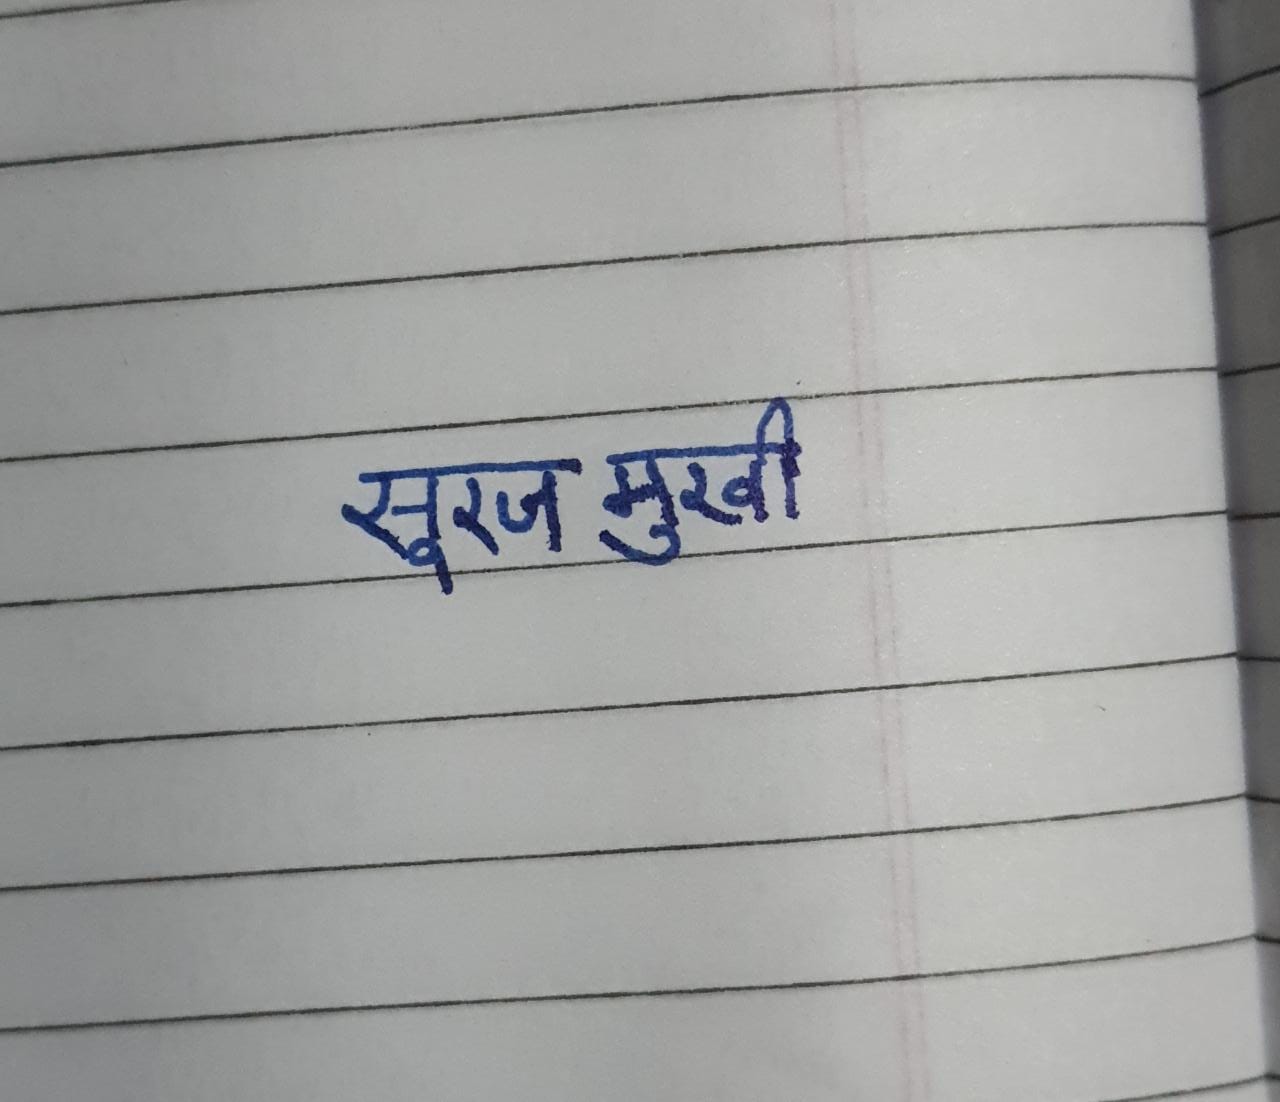 सूरज मुखी